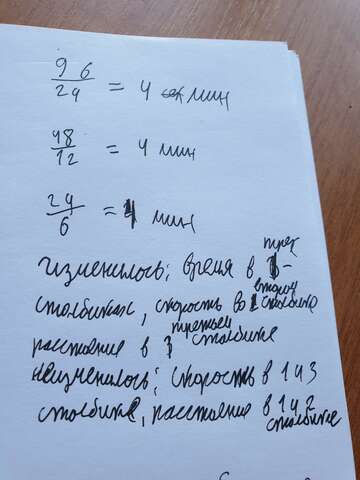 96
24 = 4 мин
48
12 = 4 мин
24
6 = 4 мин
изменилось: время в трех
столбиках, скорость во втором столбике
расстояние в третьем столбике
неизменилось: скорость в 1 и 3
столбике, расстояние в 1 и 2
столбике